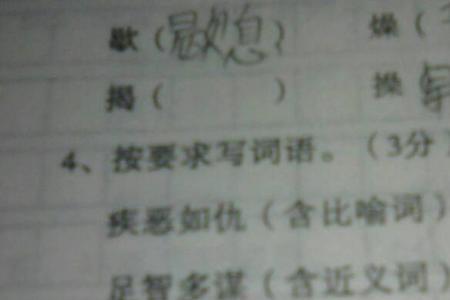 歇（歇息） 燥（
揭（ ） 操
4、按要求写词语。（3分
疾恶如仇（含比喻词）
足智多谋（含近义词）